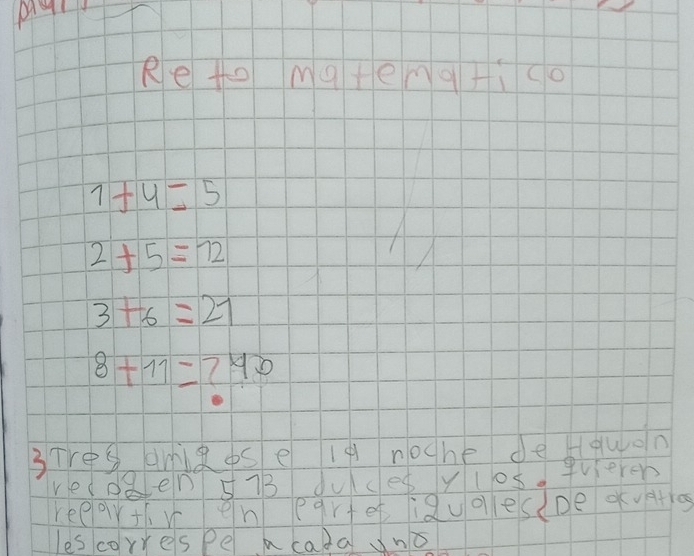 Reto matematico
1+4=5
2+5=12
3+6=21
8+11=? 40
3 Tres amigos e la noche de Hawen
recogen 513 dulces y los. quieren
repartir en partes iguales ¿De acuatros
les corres pe a cada uno